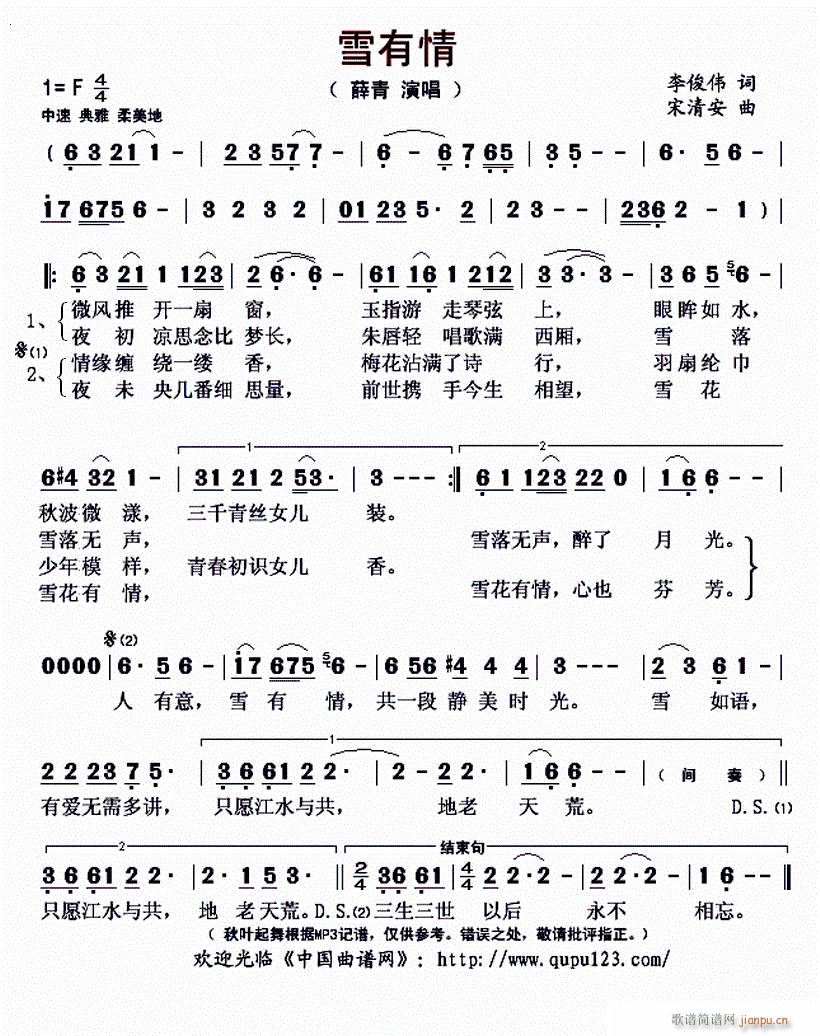 雪有情
1=F 4/4
（ 薛青 演唱 ）
李俊伟 词
中速 典雅 柔美地
宋清安 曲
( 6 3 21 1 - | 2 3 57 7 - | 6 - 6 7 65 | 3 5 - - | 6· 5 6 - |
17 675 6 - | 3 2 3 2 | 01 23 5· 2 | 2 3 - - | 236 2 - 1 ) |
|: 6 3 21 1 123 | 2 6· 6 - | 61 16 1 212 | 3 3· 3 - | 3 6 5 5 6 - |
1、 微风推 开一扇 窗， 玉指游 走琴弦 上， 眼眸如 水，
夜 初 凉思念比 梦长， 朱唇轻 唱歌满 西厢， 雪 落
(1)
2、 情缘缠 绕一缕 香， 梅花沾满了诗 行， 羽扇纶 巾
夜 未 央几番细 思量， 前世携 手今生 相望， 雪 花
1 2
6#4 32 1 - | 31 21 2 53· | 3 - - - :| 6 1 123 22 0 | 1 6 6 - - |
秋波微 漾， 三千青丝女儿 装。
雪落无声， 雪落无声，醉了 月 光。
少年模 样， 青春初识女儿 香。
雪花有 情， 雪花有情，心也 芬 芳。
(2)
0000 | 6· 5 6 - | 17 675 5 6 - | 6 56 #4 4 4 | 3 - - - | 2 3 6 1 - |
人 有意， 雪 有 情， 共一段 静 美 时 光。 雪 如语，
1
2 2 23 7 5· | 3 6 61 2 2· | 2 - 2 2· | 1 6 6 - - | （ 间 奏 ） ||
有爱无需多讲， 只愿江水与共， 地老 天 荒。 D.S.(1)
2 结束句
3 6 61 2 2· | 2· 1 5 3· || 2/4 36 61 | 4/4 2 2·2 - | 2 2·2 - | 1 6 - - ||
只愿江水与共， 地 老天荒。D.S.(2)三生三世 以后 永不 相忘。
（ 秋叶起舞根据MP3记谱，仅供参考。错误之处，敬请批评指正。）
欢迎光临《中国曲谱网》：http://www.qupu123.com/
歌谱简谱网
jianpu.cn